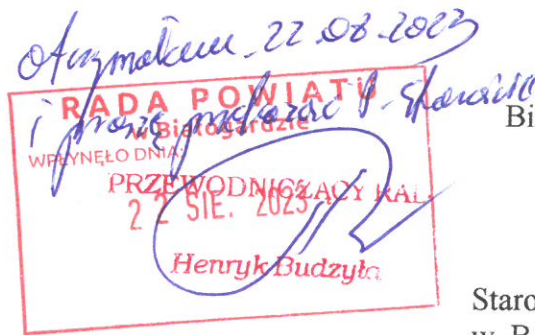 otrzymałem 22.08.2023
i proszę przekazać P. Staroście
RADA POWIATU
w Białogardzie
WPŁYNĘŁO DNIA:
PRZEWODNICZĄCY RAD
22 SIE. 2023
Henryk Budzyła
Bi
Staro
w B